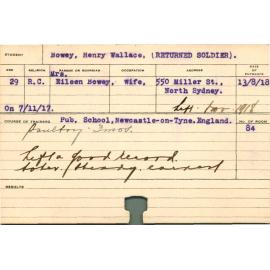 STUDENT Bowey, Henry Wallace, (RETURNED SOLDIER). DATE OF ENTRANCE
AGE RELIGION PARENT OR GUARDIAN OCCUPATION ADDRESS
Mrs.
29 R.C. Eileen Bowey, Wife, 550 Miller St., 13/8/18
North Sydney.
On 7/11/17. Left Nov 1918
COURSE OF TRAINING Pub. School, Newcastle-on-Tyne. England. NO. OF ROOM
Poultry 3 mos. 84
Left a good record.
Sober, steady, earnest
RESULTS